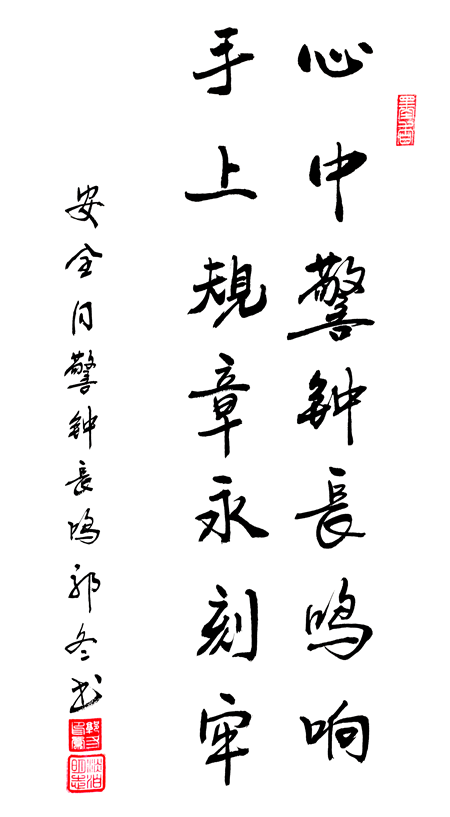 心中警钟長鸣响
手上規章永刻牢
安全月警钟長鸣郭冬书